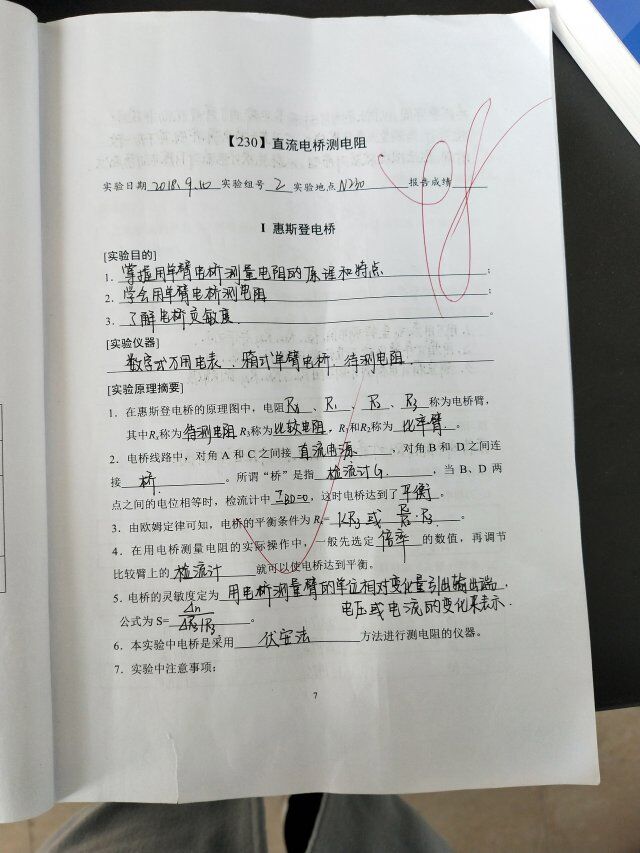 【230】直流电桥测电阻
实验日期 2018.9.10 实验组号 2 实验地点 N230 报告成绩
98
I 惠斯登电桥
[实验目的]
1. 掌握用单臂电桥测量电阻的原理和特点；
2. 学会用单臂电桥测电阻；
3. 了解电桥灵敏度。
[实验仪器]
数字式万用电表、箱式单臂电桥、待测电阻.
[实验原理摘要]
1. 在惠斯登电桥的原理图中，电阻 Rx、R1、R2、R3 称为电桥臂，
其中Rx称为 待测电阻 R3称为 比较电阻，R1和R2称为 比率臂。
2. 电桥线路中，对角 A 和 C 之间接 直流电源，对角 B 和 D 之间连
接 桥。所谓“桥”是指 检流计G，当 B、D 两
点之间的电位相等时，检流计中 IBD=0，这时电桥达到了 平衡。
3. 由欧姆定律可知，电桥的平衡条件为 Rx= KR3 或 R1/R2·R3。
4. 在用电桥测量电阻的实际操作中，一般先选定 倍率 的数值，再调节
比较臂上的 检流计 就可以使电桥达到平衡。
5. 电桥的灵敏度定为 用电桥测量臂的单位相对变化量引出输出端
电压或电流的变化来表示.
公式为 S= Δn/(ΔR3/R3)。
6. 本实验中电桥是采用 伏安法 方法进行测电阻的仪器。
7. 实验中注意事项：
7